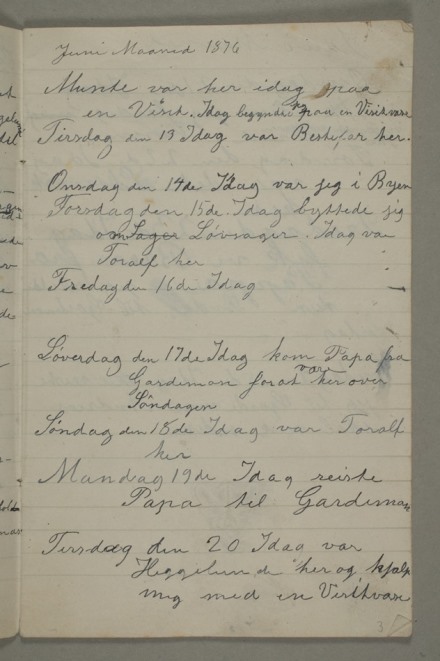 Juni Maaned 1876
Munthe var her idag paa
en Visit. Idag begyndte jeg paa en Visitvase
Tirsdag den 13 Idag var Bestefar her.
Onsdag den 14de Idag var jeg i Byen
Torsdag den 15de. Idag byttede jeg
om Løvsager. Idag var
Toralf her
Fredag den 16de Idag
Løverdag den 17de Idag kom Papa fra
Gardemon forat være her over
Søndagen
Søndag den 18de Idag var Toralf
her
Mandag 19de Idag reiste
Papa til Gardemon
Tirsdag den 20 Idag var
her og hjalp
mig med en Visitvase
3